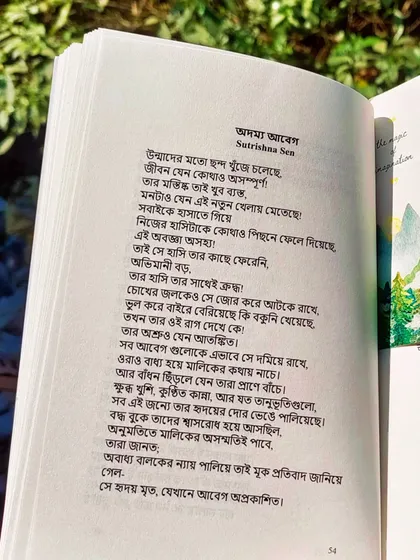 অদম্য আবেগ
Sutrishna Sen
উন্মাদের মতো ছন্দ খুঁজে চলেছে,
জীবন যেন কোথাও অসম্পূর্ণ!
তার মস্তিষ্ক তাই খুব ব্যস্ত,
মনটাও যেন এই নতুন খেলায় মেতেছে!
সবাইকে হাসাতে গিয়ে
নিজের হাসিটাকে কোথাও পিছনে ফেলে দিয়েছে,
এই অবজ্ঞা অসহ্য!
তাই সে হাসি তার কাছে ফেরেনি,
অভিমানী বড়,
তার হাসি তার সাথেই ক্রুদ্ধ!
চোখের জলকেও সে জোর করে আটকে রাখে,
ভুল করে বাইরে বেরিয়েছে কি বকুনি খেয়েছে,
তখন তার ওই রাগ দেখে কে!
তার অশ্রুও যেন আতঙ্কিত।
সব আবেগ গুলোকে এভাবে সে দমিয়ে রাখে,
ওরাও বাধ্য হয়ে মালিকের কথায় নাচে।
আর বাঁধন ছিঁড়লে যেন তারা প্রাণে বাঁচে।
ক্ষুব্ধ খুশি, কুণ্ঠিত কান্না, আর যত তানুভূতিগুলো,
সব এই জন্যে তার হৃদয়ের দোর ভেঙে পালিয়েছে।
বদ্ধ বুকে তাদের শ্বাসরোধ হয়ে আসছিল,
অনুমতিতে মালিকের অসম্মতিই পাবে,
তারা জানত;
অবাধ্য বালকের ন্যায় পালিয়ে তাই মূক প্রতিবাদ জানিয়ে
গেল-
সে হৃদয় মৃত, যেখানে আবেগ অপ্রকাশিত।
54
the magic
of
imagination